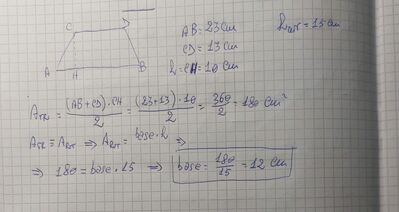 C D
A H B
AB = 23 cm
CD = 13 cm
h = CH = 10 cm
h_RET = 15 cm
A_TR = (AB + CD) · CH / 2 = (23+13) · 10 / 2 = 360 / 2 = 180 cm²
A_TR = A_RET ⇒ A_RET = base · h ⇒
⇒ 180 = base · 15 ⇒ base = 180 / 15 = 12 cm